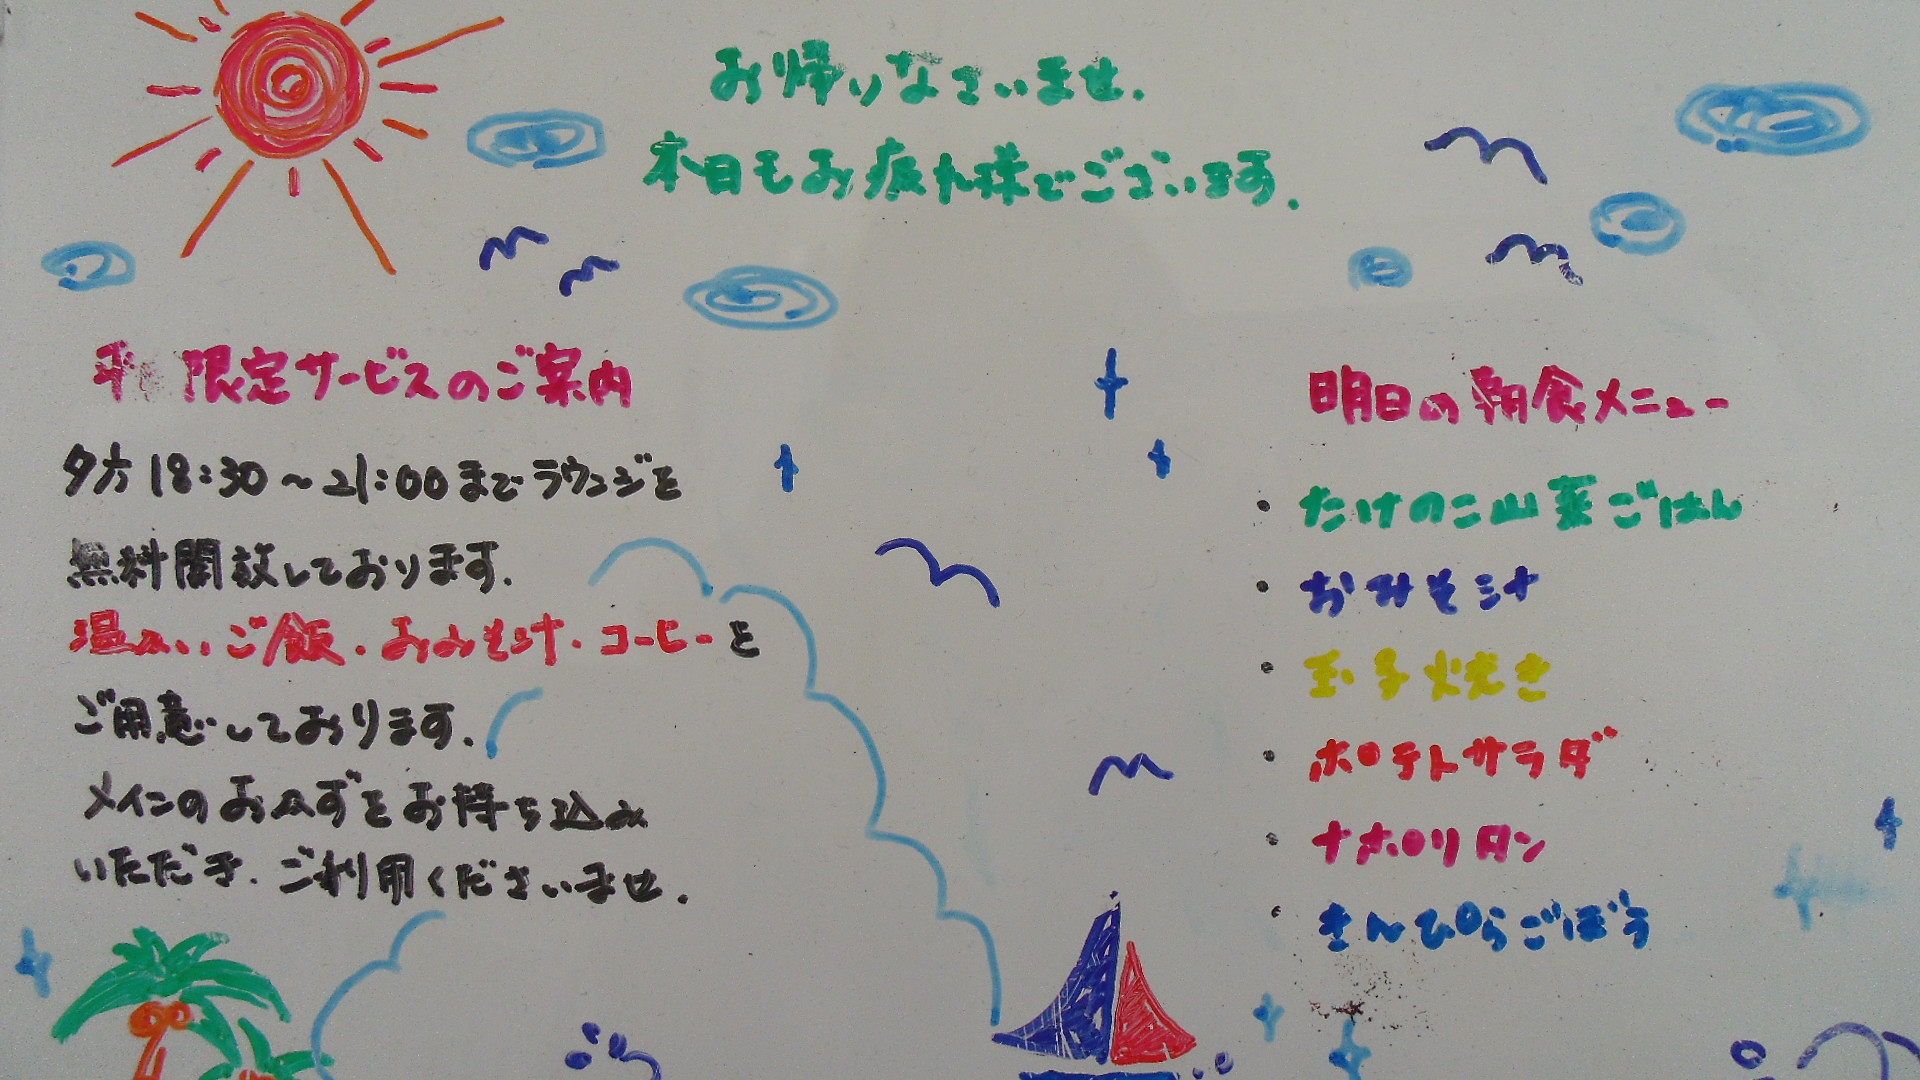 お帰りなさいませ.
本日もお疲れ様でございます.
平 限定サービスのご案内
夕方 18:30～21:00まで ラウンジを
無料開放しております.
温かいご飯・おみそ汁・コーヒーを
ご用意しております.
メインのおかずをお持ち込み
いただき.ご利用くださいませ.
明日の朝食メニュー
・たけのこ山菜ごはん
・おみそ汁
・玉子焼き
・ポテトサラダ
・ナポリタン
・きんぴらごぼう